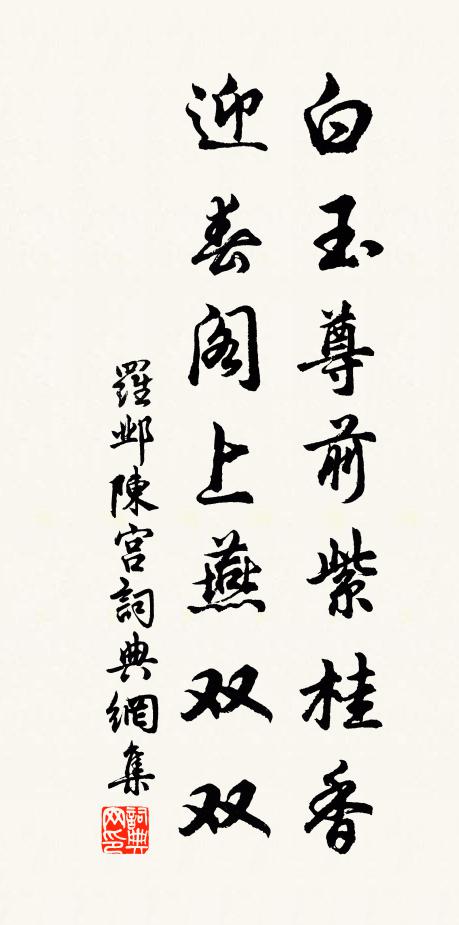 白玉尊前紫桂香
迎春阁上燕双双
羅邺陳宫詞典網集
詞典网印